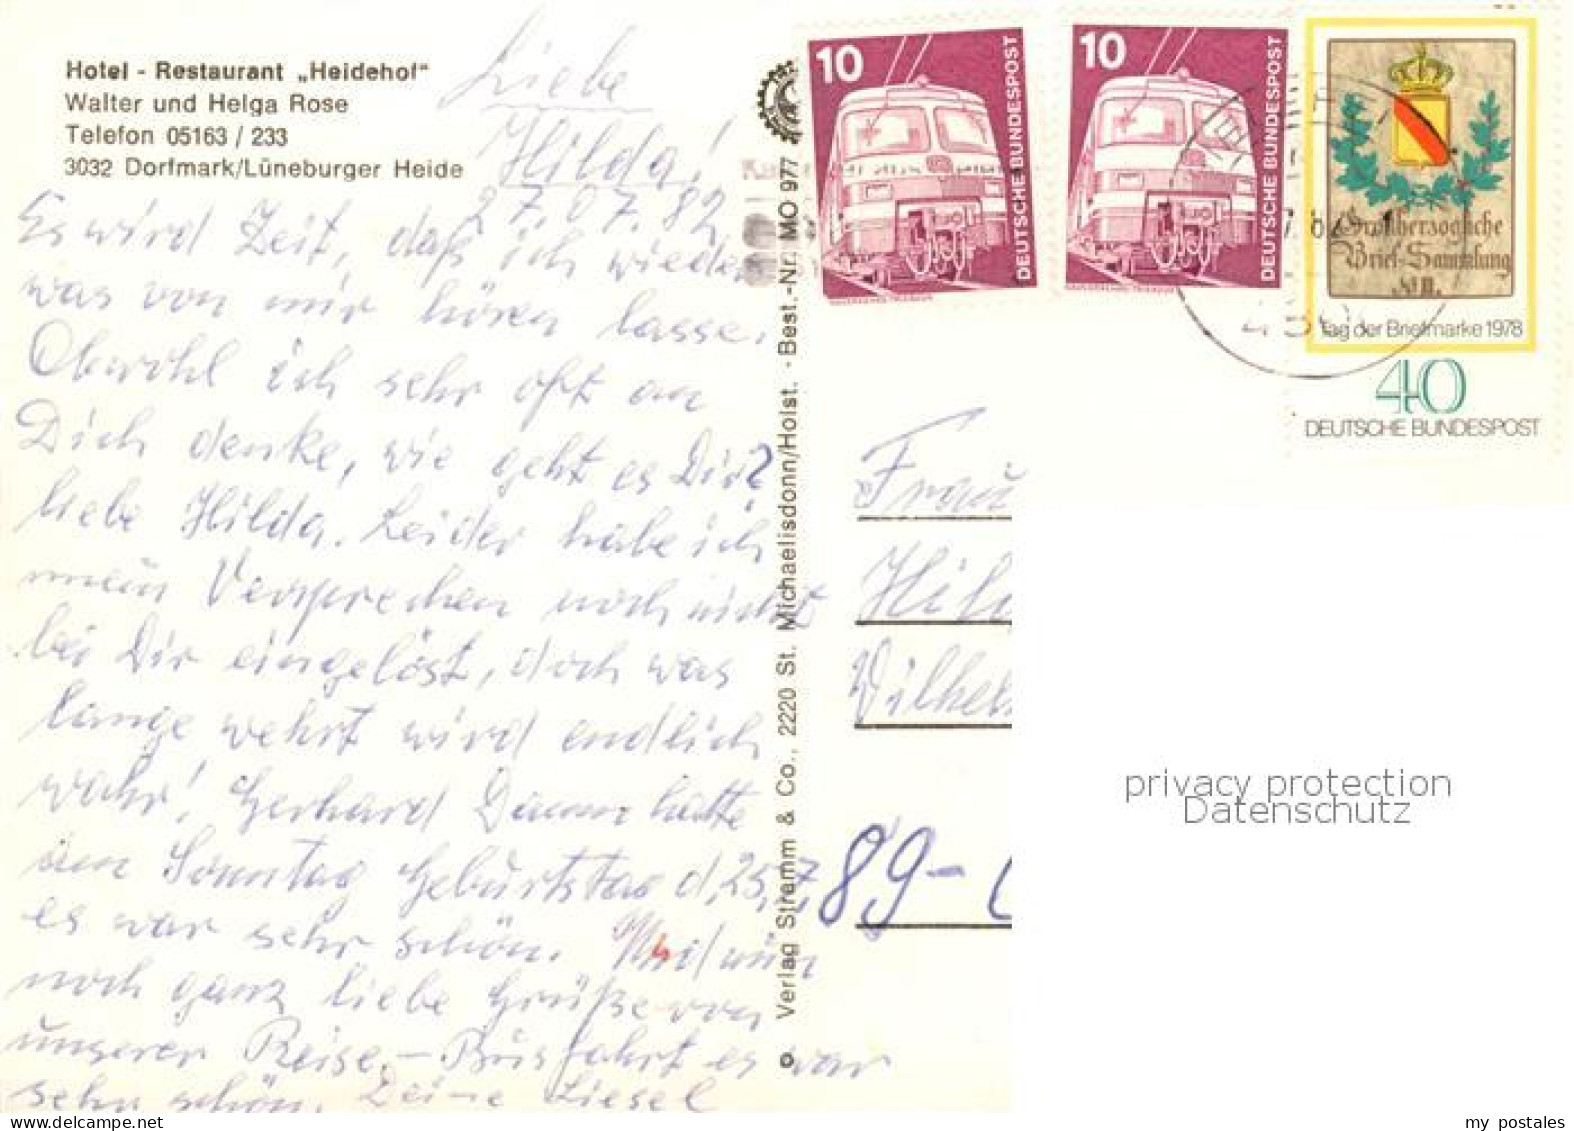 Hotel - Restaurant „Heidehof"
Walter und Helga Rose
Telefon 05163 / 233
3032 Dorfmark/Lüneburger Heide
Liebe
Hilda!
27.07.82
Es wird Zeit, daß ich wieder
was von mir hören lasse.
Obwohl ich sehr oft an
Dich denke, wie geht es Dir?
liebe Hilda. Leider habe ich
mein Versprechen noch nicht
bei Dir eingelöst, doch was
lange wehrt wird endlich
wahr! Gerhard Damm hatte
am Sonntag Geburtstag d. 25.7.
es war sehr schön. Und nun
noch ganz liebe Grüße von
unserer Reise. – Busfahrt es war
sehr schön. Deine Liesel
Verlag Stramm & Co., 2220 St. Michaelisdonn/Holst. · Best.-Nr. MO 977
10
DEUTSCHE BUNDESPOST
10
DEUTSCHE BUNDESPOST
Großherzogliche
Brief-Sammlung
No II.
Tag der Briefmarke 1978
40
DEUTSCHE BUNDESPOST
Frau
Hil
Wilhel
89-
privacy protection
Datenschutz
my postales